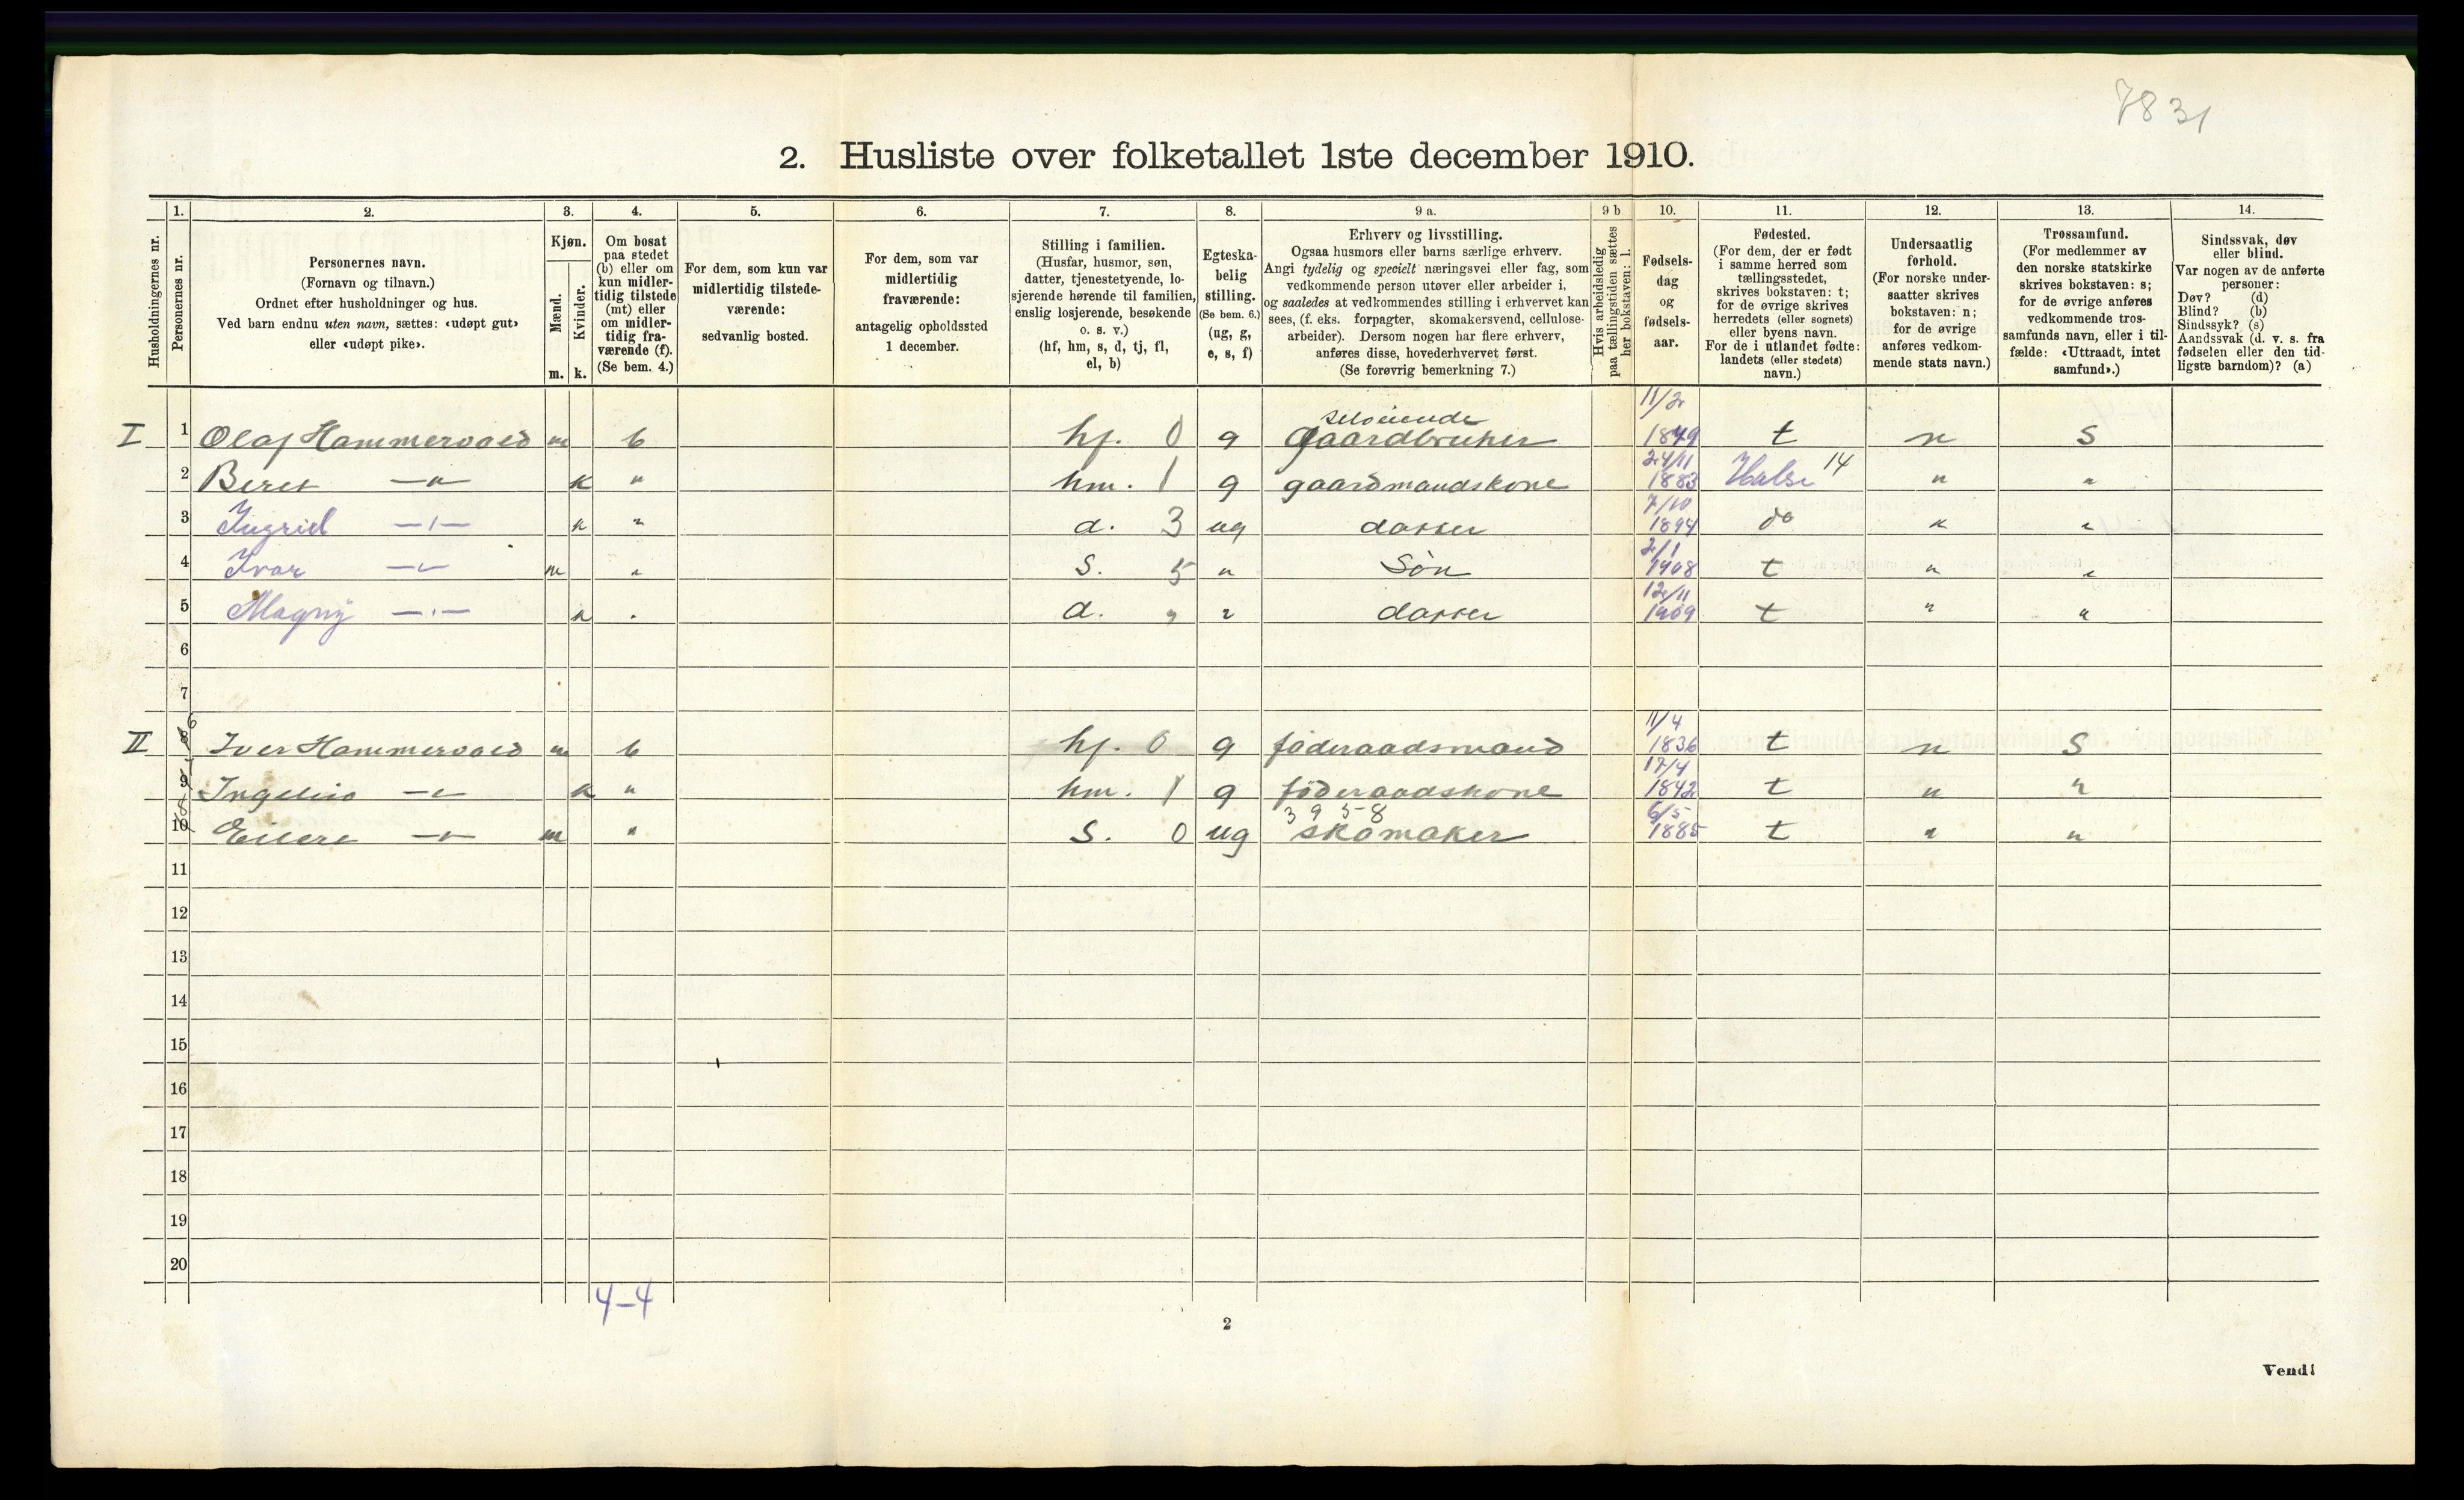 7831
2. Husliste over folketallet 1ste december 1910.
1. 2. 3. 4. 5. 6. 7. 8. 9 a. 9 b 10. 11. 12. 13. 14.
Husholdningernes nr.
Personernes nr.
Personernes navn.
(Fornavn og tilnavn.)
Ordnet efter husholdninger og hus.
Ved barn endnu uten navn, sættes: «udøpt gut»
eller «udøpt pike».
Kjøn.
Mænd. Kvinder.
m. k.
Om bosat
paa stedet
(b) eller om
kun midler-
tidig tilstede
(mt) eller
om midler-
tidig fra-
værende (f).
(Se bem. 4.)
For dem, som kun var
midlertidig tilstede-
værende:
sedvanlig bosted.
For dem, som var
midlertidig
fraværende:
antagelig opholdssted
1 december.
Stilling i familien.
(Husfar, husmor, søn,
datter, tjenestetyende, lo-
sjerende hørende til familien,
enslig losjerende, besøkende
o. s. v.)
(hf, hm, s, d, tj, fl,
el, b)
Egteska-
belig
stilling.
(Se bem. 6.)
(ug, g,
e, s, f)
Erhverv og livsstilling.
Ogsaa husmors eller barns særlige erhverv.
Angi tydelig og specielt næringsvei eller fag, som
vedkommende person utøver eller arbeider i,
og saaledes at vedkommendes stilling i erhvervet kan
sees, (f. eks. forpagter, skomakersvend, cellulose-
arbeider). Dersom nogen har flere erhverv,
anføres disse, hovederhvervet først.
(Se forøvrig bemerkning 7.)
Hvis arbeidsledig
paa tællingstiden sættes
her bokstaven: l.
Fødsels-
dag
og
fødsels-
aar.
Fødested.
(For dem, der er født
i samme herred som
tællingsstedet,
skrives bokstaven: t;
for de øvrige skrives
herredets (eller sognets)
eller byens navn.
For de i utlandet fødte:
landets (eller stedets)
navn.)
Undersaatlig
forhold.
(For norske under-
saatter skrives
bokstaven: n;
for de øvrige
anføres vedkom-
mende stats navn.)
Trossamfund.
(For medlemmer av
den norske statskirke
skrives bokstaven: s;
for de øvrige anføres
vedkommende tros-
samfunds navn, eller i til-
fælde: «Uttraadt, intet
samfund».)
Sindssvak, døv
eller blind.
Var nogen av de anførte
personer:
Døv? (d)
Blind? (b)
Sindssyk? (s)
Aandssvak (d. v. s. fra
fødselen eller den tid-
ligste barndom)? (a)
selveiende 11/2
I 1 Olaf Hammervold m b hf. 0 g gaardbruker 1849 t n S
24/11
2 Beret —"— k " hm. 1 g gaardmandskone 1883 Halse 14 " "
7/10
3 Ingrid —"— k " d. 3 ug datter 1894 do " "
2/1
4 Ivar —"— m " S. 5 " Sön 1908 t " "
12/11
5 Magny —"— k " d. " " datter 1909 t " "
6
7
6 11/4
II 8 Iver Hammervold m b hf. 0 g föderaadsmand 1836 t n S
7 17/4
9 Ingeline —"— k " hm. 1 g föderaadskone 1842 t " "
8 3 9 5-8 6/5
10 Eilert —"— m " S. 0 ug skomaker 1885 t " "
11
12
13
14
15
16
17
18
19
20
4–4
2
Vend!